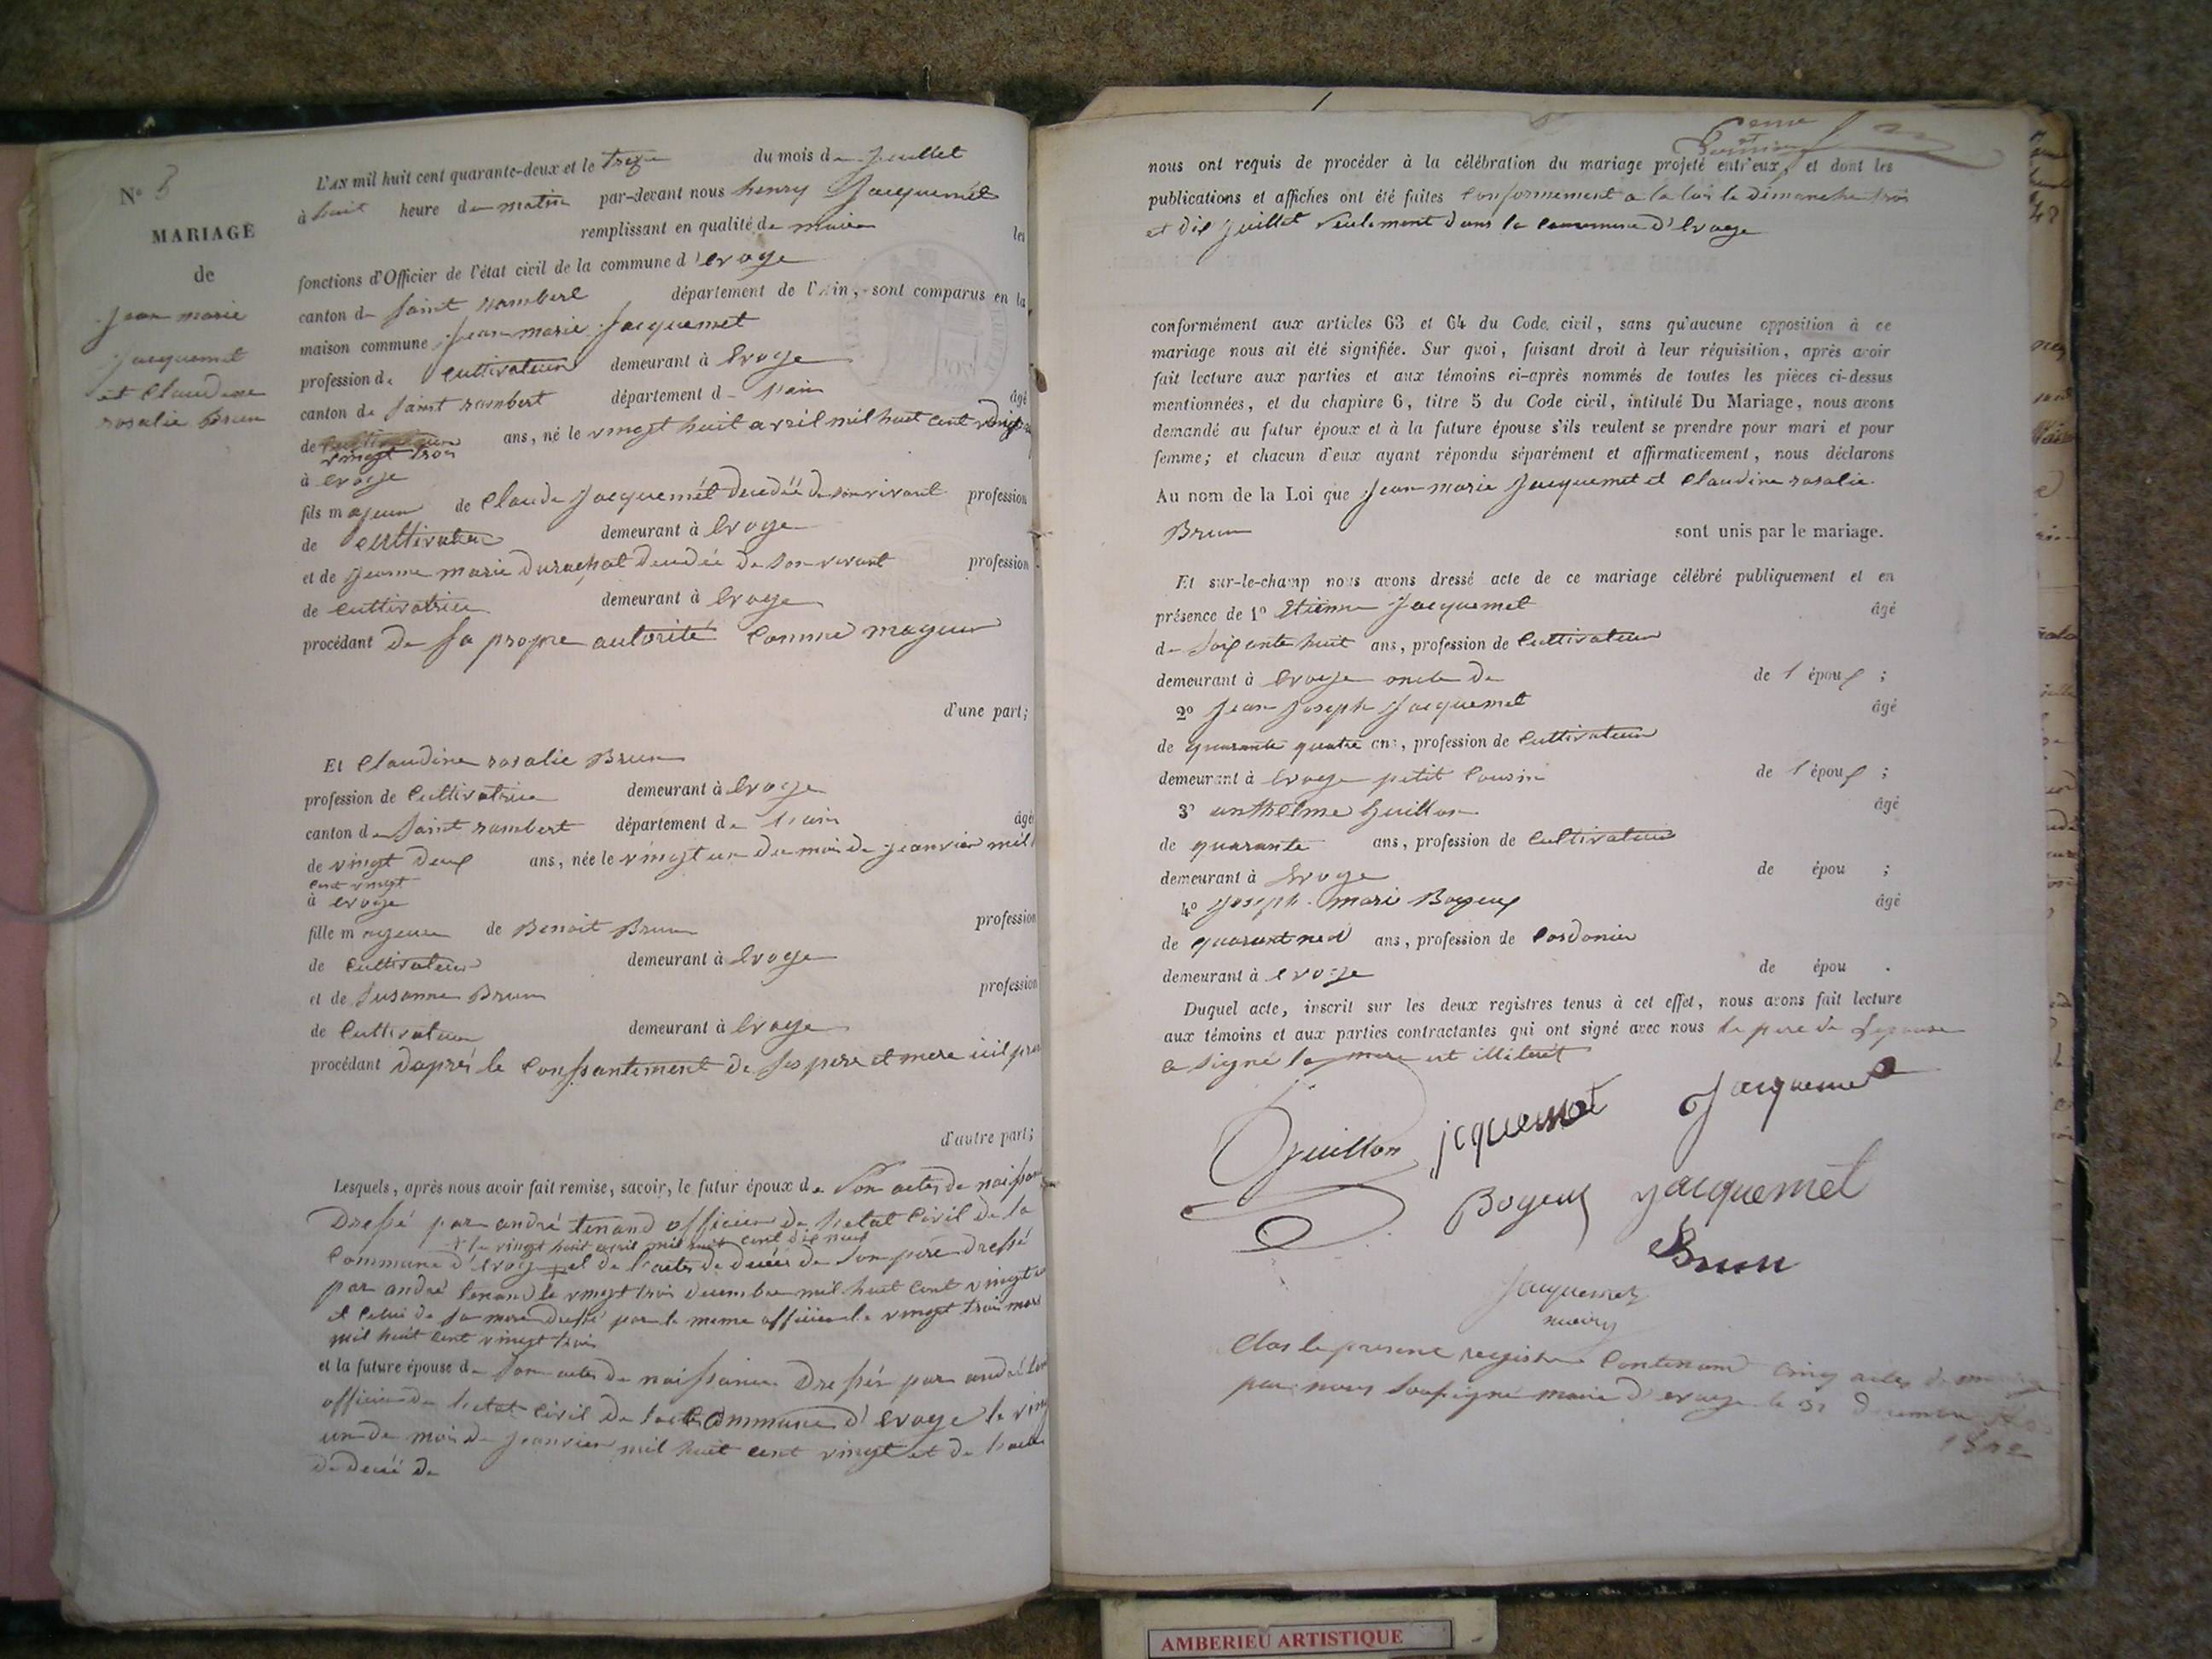 N° 5
MARIAGE
de
Jean marie
Jacquemet
et Claudine
rosalie Brun
L'AN mil huit cent quarante-deux et le treze du mois de Juillet
à huit heure du matin par-devant nous henry Jacquemet
remplissant en qualité de maire les
fonctions d'Officier de l'état civil de la commune d'evoge
canton de Saint rambert département de l'Ain, sont comparus en la
maison commune Jean marie Jacquemet
profession de cultivateur demeurant à Evoge
canton de Saint rambert département de l'ain âgé
de vingt trois ans, né le vingt huit avril mil huit cent
à evoge
fils majeur de Claude Jacquemét decedéé de son vivant profession
de cultivateur demeurant à Evoge
et de Jeanne marie durachat decedée de son vivant profession
de cultivatrice demeurant à Evoge
procédant de sa propre autorité comme mageur
d'une part;
Et Claudine rosalie Brun
profession de cultivatrice demeurant à Evoge
canton de Saint rambert département de l'ain âgé
de vingt deux ans, née le vingt un du mois de janvier mil
cent vingt
à evoge
fille mageure de Benoit Brun profession
de cultivateur demeurant à Evoge
et de Susanne Brun profession
de cultivateur demeurant à Evoge
procédant d'aprés le conssantement de ses pere et mere
d'autre part;
Lesquels, après nous avoir fait remise, savoir, le futur époux de son actes de naissan
Dressé par andré tenand officier de l'etat civil de la
+ le vingt huit avril mil huit cent dix neuf
commune d'evoge + et de l'actes de decés de son pere dressé
par andré tenand le vingt trois decembre mil huit cent vingt
et celui de sa mere dressé par le meme officier le vingt trois mars
mil huit cent vingt trois
et la future épouse de son actes de naissance Dressér par andré
officier de l'etat civil de la commune d'evoge le vin
un de mois de janvier mil huit cent vingt et de l'acte
de decés de
nous ont requis de procéder à la célébration du mariage projeté entr'eux, et dont les
publications et affiches ont été faites conformement a la loi le dimanche trois
et dix juillet seulement dans la commune d'Evoge
conformément aux articles 63 et 64 du Code civil, sans qu'aucune opposition à ce
mariage nous ait été signifiée. Sur quoi, faisant droit à leur réquisition, après avoir
fait lecture aux parties et aux témoins ci-après nommés de toutes les pièces ci-dessus
mentionnées, et du chapitre 6, titre 5 du Code civil, intitulé Du Mariage, nous avons
demandé au futur époux et à la future épouse s'ils veulent se prendre pour mari et pour
femme; et chacun d'eux ayant répondu séparément et affirmativement, nous déclarons
Au nom de la Loi que Jean marie Jacquemet et Claudine rosalie
Brun sont unis par le mariage.
Et sur-le-champ nous avons dressé acte de ce mariage célébré publiquement et en
présence de 1° Etienne Jacquemet âgé
de soixante huit ans, profession de cultivateur
demeurant à Evoge oncle de de l époux ;
2° Jean Joseph Jacquemet âgé
de quarante quatre ans, profession de cultivateur
demeurant à Evoge petit cousin de l époux ;
3° anthelme Guillon âgé
de quarante ans, profession de cultivateur
demeurant à Evoge de épou ;
4° Joseph marie Bogeux âgé
de ans, profession de Cordonier
demeurant à Evoge de épou .
Duquel acte, inscrit sur les deux registres tenus à cet effet, nous avons fait lecture
aux témoins et aux parties contractantes qui ont signé avec nous le pere de l'epouse
a signé la mere est illiterét
Guillon jcquemet Jacquemet
Bogeux Jacquemet
Brun
Jacquemet
maire
Clos le present registre contenant cinq actes de mariage
par nous soussigné maire d'evoge le 31 decembre
1842
AMBERIEU ARTISTIQUE